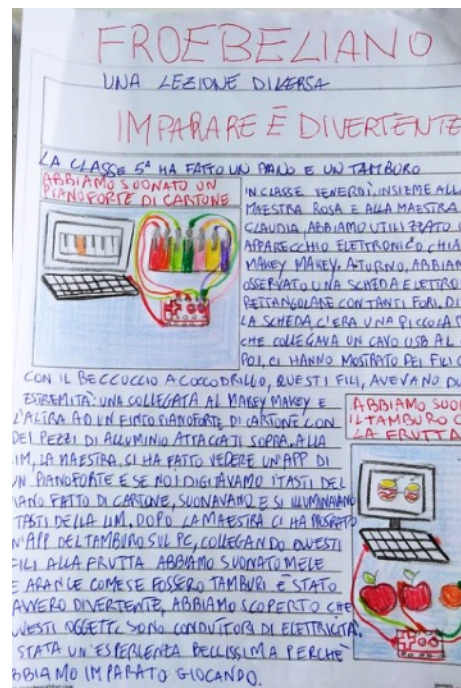 FROEBELIANO
UNA LEZIONE DIVERSA
IMPARARE È DIVERTENTE
LA CLASSE 5ª HA FATTO UN PIANO E UN TAMBURO
ABBIAMO SUONATO UN
PIANOFORTE DI CARTONE
IN CLASSE VENERDÌ, INSIEME ALLA
MAESTRA ROSA E ALLA MAESTRA
CLAUDIA, ABBIAMO UTILIZZATO
APPARECCHIO ELETTRONICO CHIA
MAKEY MAKEY. A TURNO, ABBIAM
OSSERVATO UNA SCHEDA ELETTRO
RETTANGOLARE CON TANTI FORI, DI
LA SCHEDA, C'ERA UNA PICCOLA
CHE COLLEGAVA UN CAVO USB AL
POI, CI HANNO MOSTRATO DEI FILI
CON IL BECCUCCIO A COCCODRILLO, QUESTI FILI, AVEVANO DU
ESTREMITÀ: UNA COLLEGATA AL MAKEY MAKEY E
L'ALTRA AD UN FINTO PIANOFORTE DI CARTONE CON
DEI PEZZI DI ALLUMINIO ATTACCATI SOPRA. ALLA
LIM, LA MAESTRA, CI HA FATTO VEDERE UN'APP DI
UN PIANOFORTE E SE NOI DIGITAVAMO I TASTI DEL
PIANO FATTO DI CARTONE, SUONAVANO E SI ILLUMINAVANO
TASTI DELLA LIM. DOPO LA MAESTRA CI HA MOSTRATO
N'APP DEL TAMBURO SUL PC, COLLEGANDO QUESTI
FILI ALLA FRUTTA ABBIAMO SUONATO MELE
E ARANCE COME SE FOSSERO TAMBURI È STATO
AVVERO DIVERTENTE, ABBIAMO SCOPERTO CHE
QUESTI OGGETTI, SONO CONDUTTORI DI ELETTRICITÀ.
STATA UN'ESPERIENZA BELLISSIMA PERCHÈ
BBIAMO IMPARATO GIOCANDO.
ABBIAMO SUO
IL TAMBURO C
LA FRUTTA